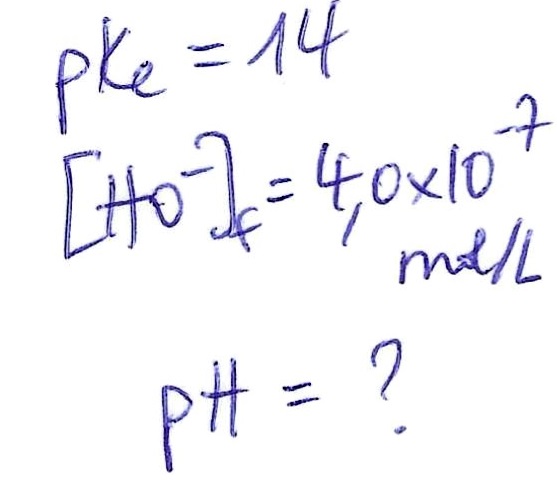 pKe = 14
[HO⁻]f = 4,0×10⁻⁷
mol/L
pH = ?